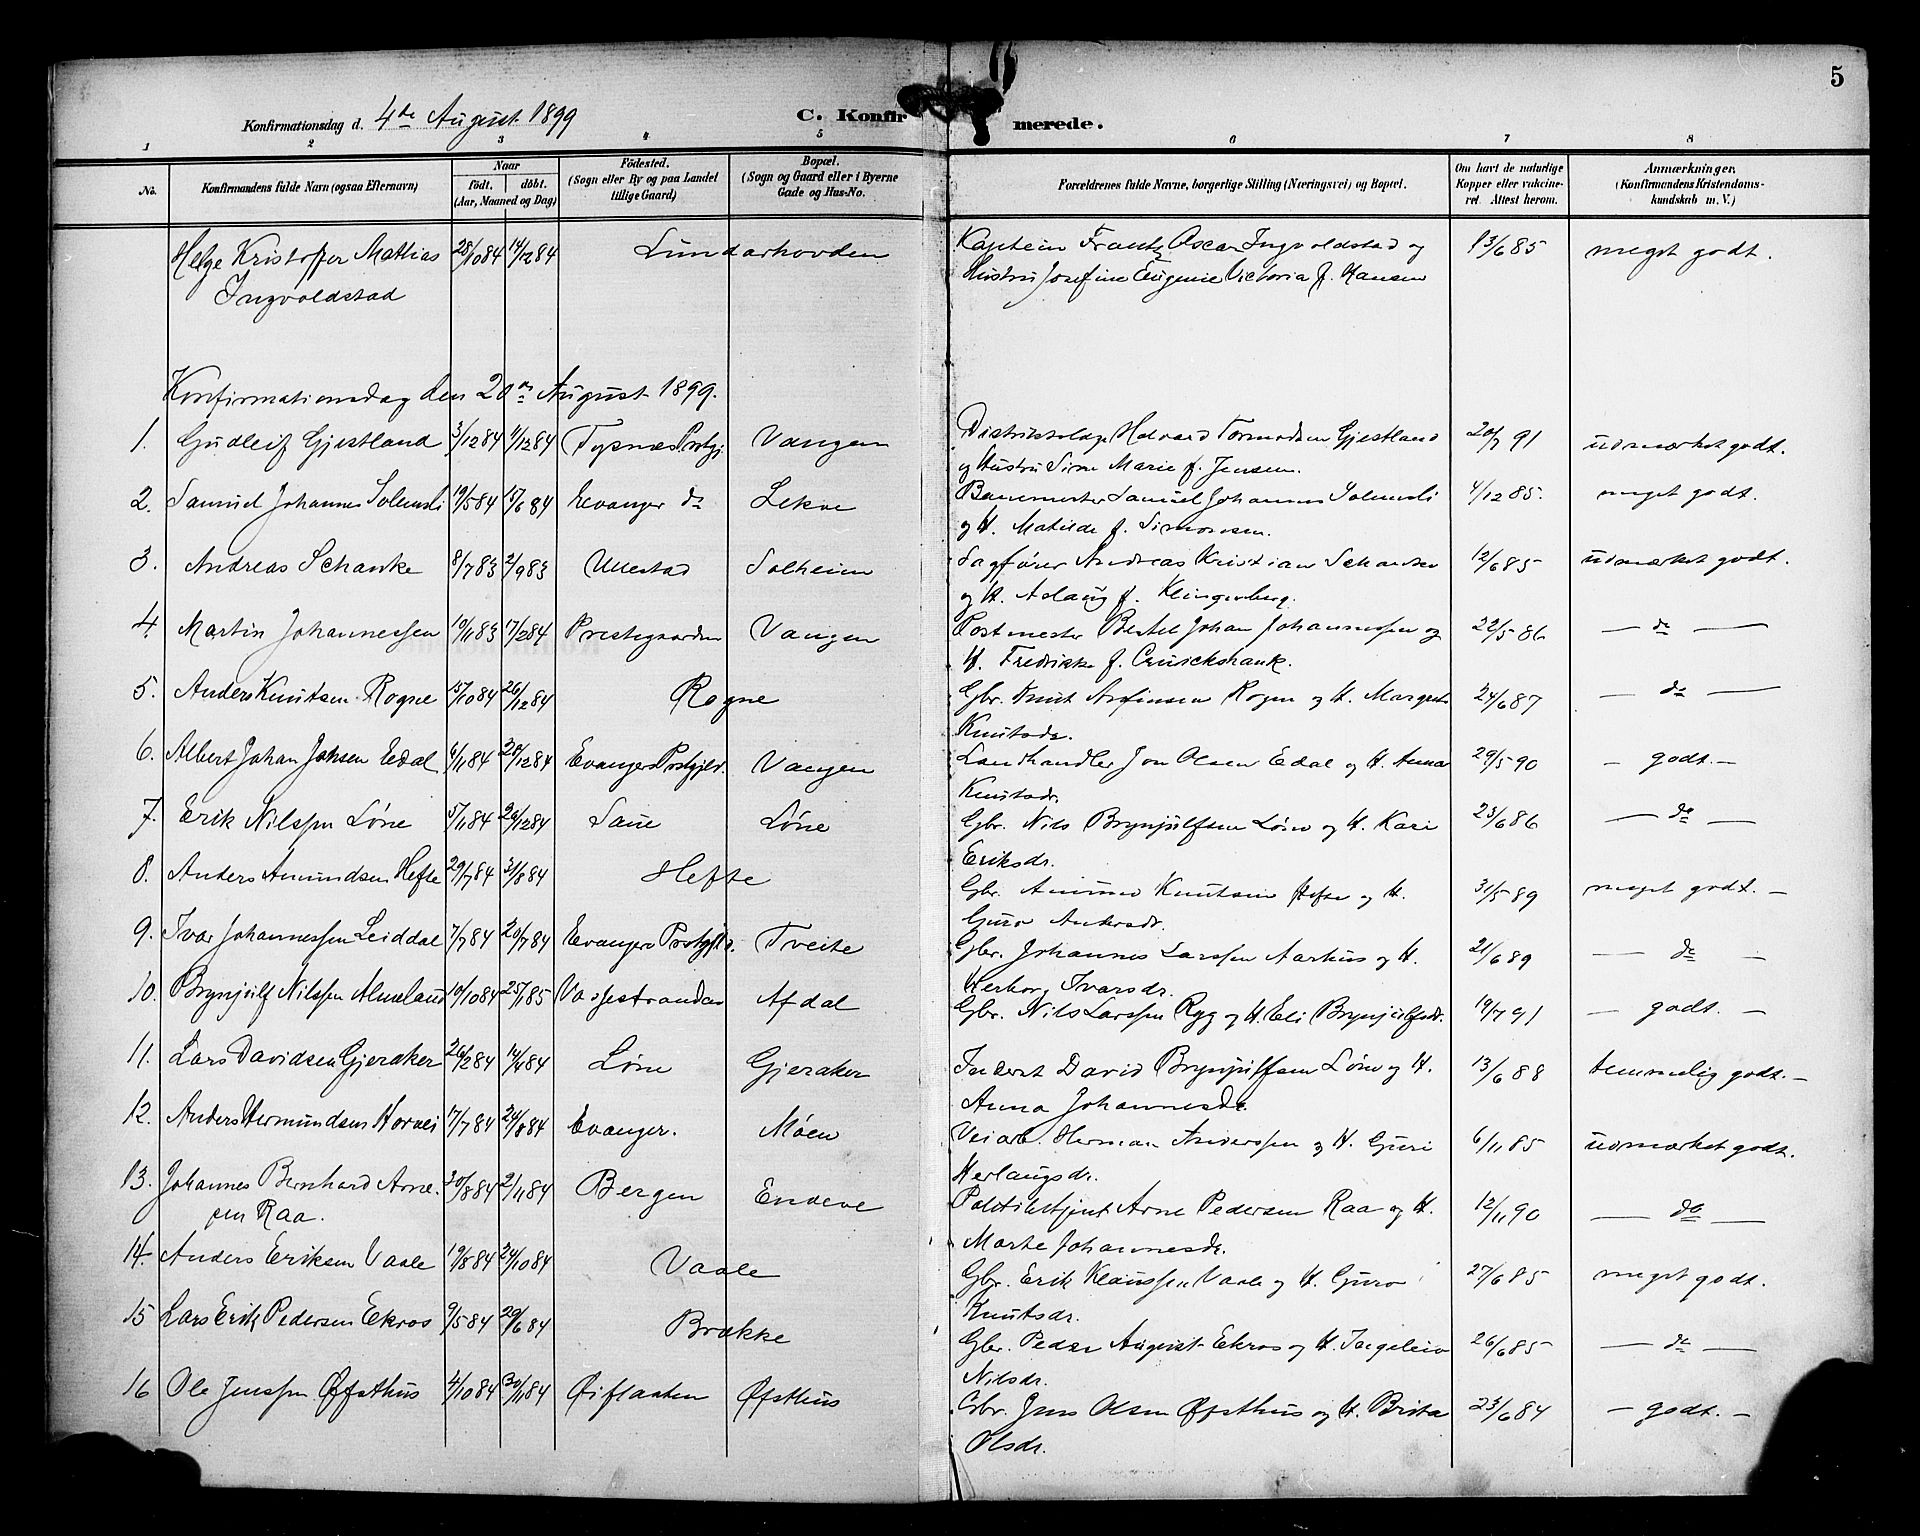 5
Konfirmationsdag d. 4de August 1899
C. Konfirmerede.
1 2 3 4 5 6 7 8
No.
Konfirmandens fulde Navn (ogsaa Efternavn)
Naar
födt. döbt.
(Aar, Maaned og Dag)
Födested.
(Sogn eller By og paa Landet
tillige Gaard)
Bopæl.
(Sogn og Gaard eller i Byerne
Gade og Hus-No.
Forældrenes fulde Navne, borgerlige Stilling (Næringsvei) og Bopæl.
Om havt de naturlige
Kopper eller vakcine-
ret. Attest herom.
Anmærkninger.
(Konfirmandens Kristendoms-
kundskab m. V.)
Helge Kristoffer Mathias 28/10 84 14/12 84 Lundarhovden Kaptein Frantz Oscar Ingvoldstad og 13/6 85 meget godt.
Ingvoldstad Hustru Josefine Eugenie Victoria f. Hansen
Konfirmationsdag den 20de August 1899.
1. Gudleif Gjestland 3/12 84 11/12 84 Tysnes Prstgj. Vangen Distriktslæge Halvard Tormodsen Gjestland 20/7 91 udmærket godt.
og Hustru Sine Marie f. Jensen.
2. Samuel Johannes Solemsli 19/5 84 15/6 84 Evanger do Lekve Banemester Samuel Johannes Solemsli 4/12 85. meget godt.
og H. Matilde f. Simonsen.
3. Andreas Schanke 8/7 83 2/9 83 Ullestad Solheim Sagfører Andreas Kristian Schanke 12/6 85 udmærket godt.
og H. Aslaug f. Klingenberg.
4. Martin Johannessen 10/11 83 17/2 84 Prestegaarden Vangen Postmester Bertel Johan Johannessen og 22/5 86 — do —
H. Fredrikke f. Cruickshank.
5. Anders Knutsen Rogne 15/10 84 26/12 84 Rogne Gbr. Knut Arfinsen Rogne og H. Margreta 24/6 87 — do —
Knutsdr.
6. Albert Johan Johsen Edal 6/11 84 28/12 84 Evanger Prstgjld. Vangen Landhandler Jon Olsen Edal og H. Anna 29/5 90 — godt. —
Knutsdr.
7. Erik Nilssen Løne 5/11 84 26/12 84 Saue Løne Gbr. Nils Brynjulfsen Løne og H. Kari 23/6 86 — do —
Eriksdr.
8. Anders Amundsen Hefte 29/7 84 31/8 84 Hefte Gbr. Amund Knutsen Hefte og H. 31/5 89 meget godt. —
Guro Andersdr.
9. Ivar Johannessen Leiddal 7/7 84 20/7 84 Evanger Prstgjld. Tveite Gbr. Johannes Larssen Aarhus og H. 21/6 89 — do —
Herborg Ivarsdr.
10. Brynjulf Nilssen Almeland 10/10 84 25/1 85 Vossestranden Afdal Gbr. Nils Larssen Ryg og H. Eli Brynjulfsdr. 19/7 91 — godt. —
11. Lars Davidsen Gjeraker 26/2 84 14/4 84 Løne Gjeraker Inderst David Brynjulfsen Løne og H. 13/6 88 temmelig godt. —
Anna Johannesdr.
12. Anders Hermundsen Horvei 17/7 84 24/8 84 Evanger. Møen Veiarb. Herman Anderssen og H. Guri 6/11 85 udmærket godt.
Herlaugsdr.
13. Johannes Bernhard Arne- 30/8 84 2/11 84 Bergen Endeve Politibetjent Arne Pedersen Raa og H. 12/11 90 — do —
sen Raa. Marte Johannesdr.
14. Anders Eriksen Vaale 19/8 84 24/10 84 Vaale Gbr. Erik Klaussen Vaale og H. Guro 27/6 85 meget godt.
Knutsdr.
15 Lars Erik Pedersen Ekros 9/5 84 29/6 84 Brække Gbr. Peder August Ekros og H. Ingeleiv 26/6 85 — do —
Nilsdr.
16 Ole Jenssen Øfsthus 4/10 84 30/11 84 Øiflaaten Øfsthus Gbr. Jens Olsen Øfsthus og H. Brita 23/6 84 — godt. —
Olsdr.